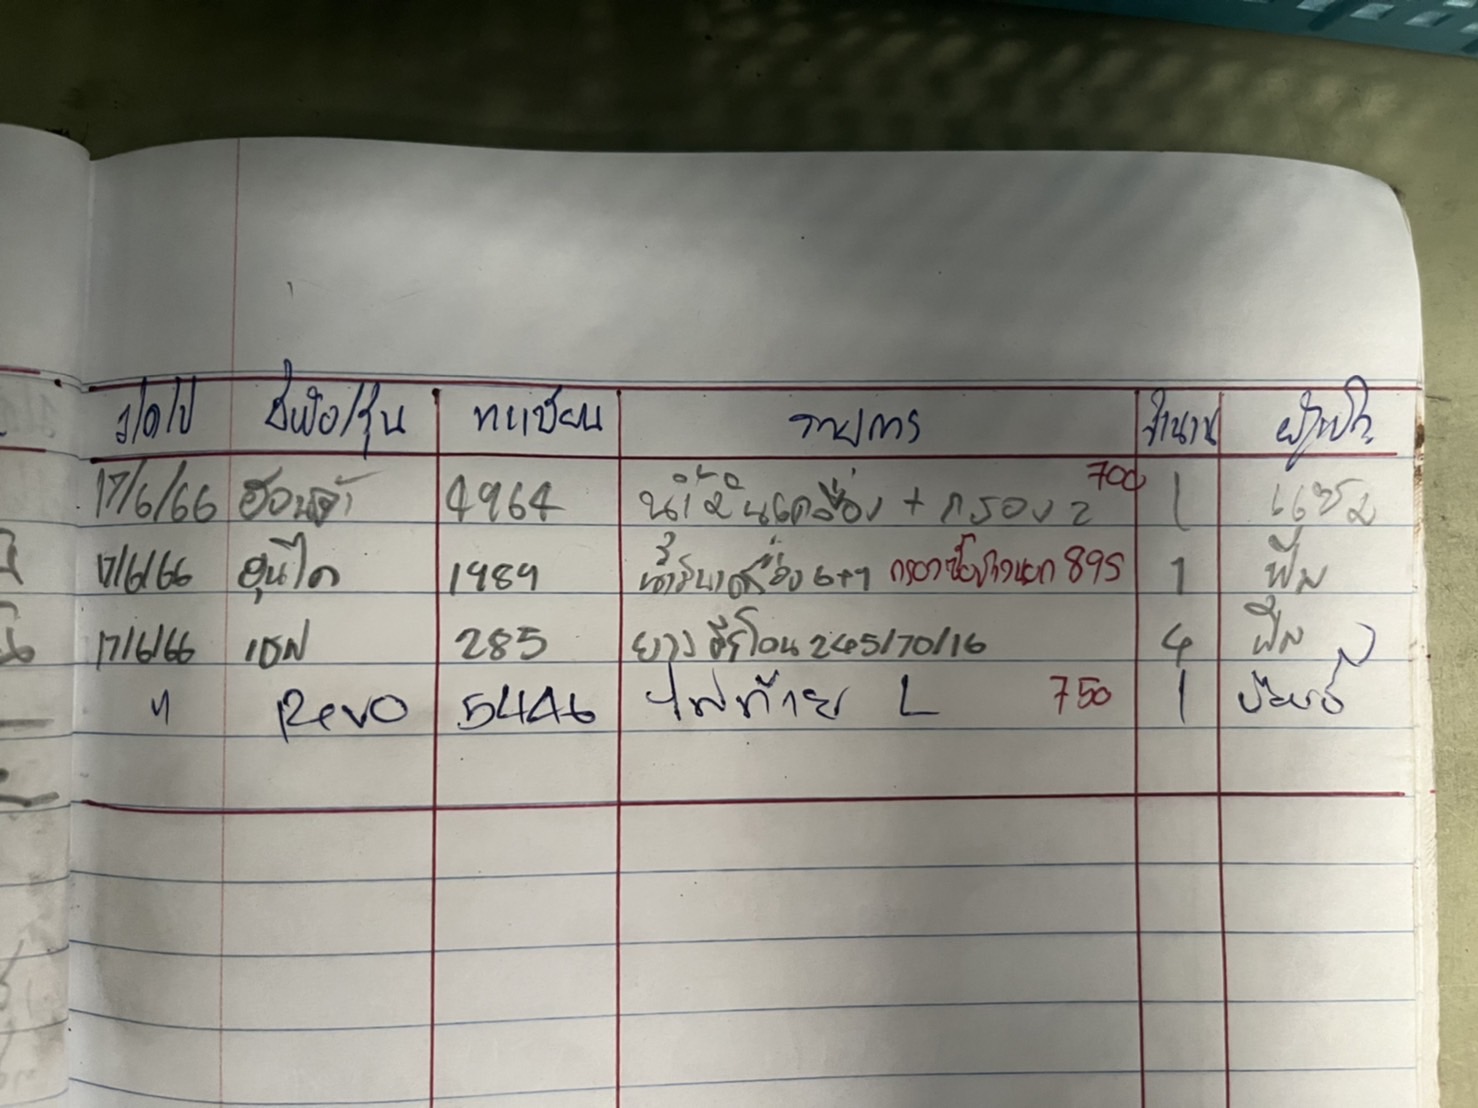 ว/ด/ป ยี่ห้อ/รุ่น ทะเบียน รายการ จำนวน ผู้เบิก
17/6/66 ฮอนด้า 4964 น้ำมันเครื่อง + กรอง 2 700 1
17/6/66 ฮุนได 1989 น้ำมันเครื่อง 6+1 กรองซื้อข้างนอก 895 1 ฟิล์ม
17/6/66 เชฟ 285 ยาง 245/70/16 4 ฟิล์ม
" Revo 5446 ไฟท้าย L 750 1